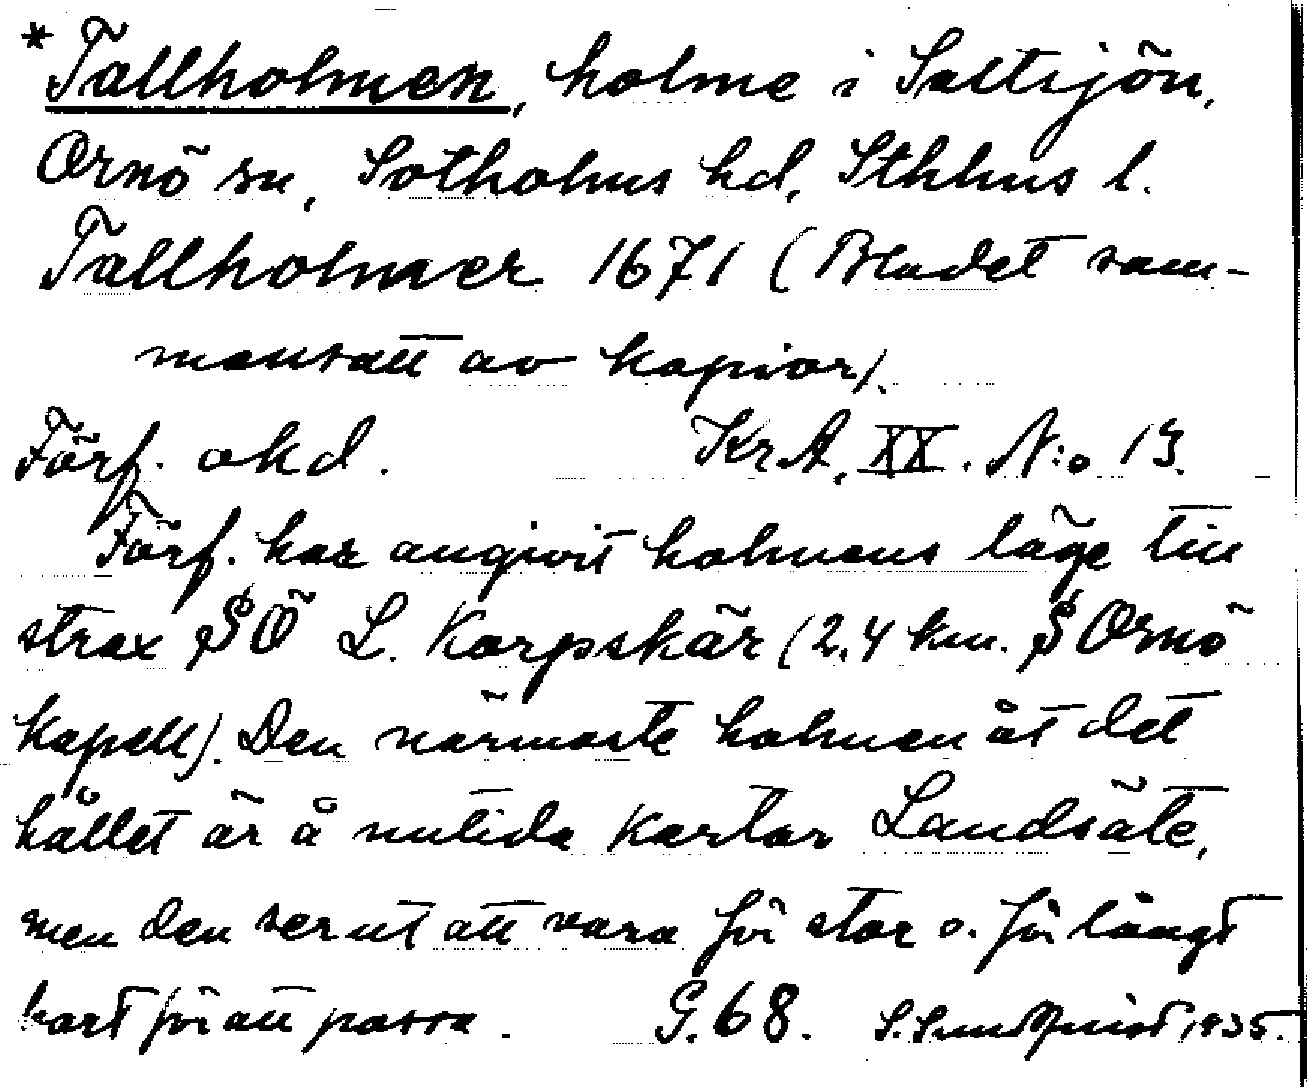 *Tallholmen, holme i Saltsjön,
Ornö sn, Sotholms hd, Sthlms l.
Tallholmer 1671 (Bladet sam-
mansatt av kopior).
Förf. okd. Kr.A. XX. N:o 13.
Förf. har angivit holmens läge till
strax SÖ L. Korpskär (2,4 km. S Ornö
kapell). Den närmaste holmen åt det
hållet är å nutida kartor Landsäte,
men den ser ut att vara för stor o. för långt
bort för att passa. G. 68. S. Sundquist 1935.